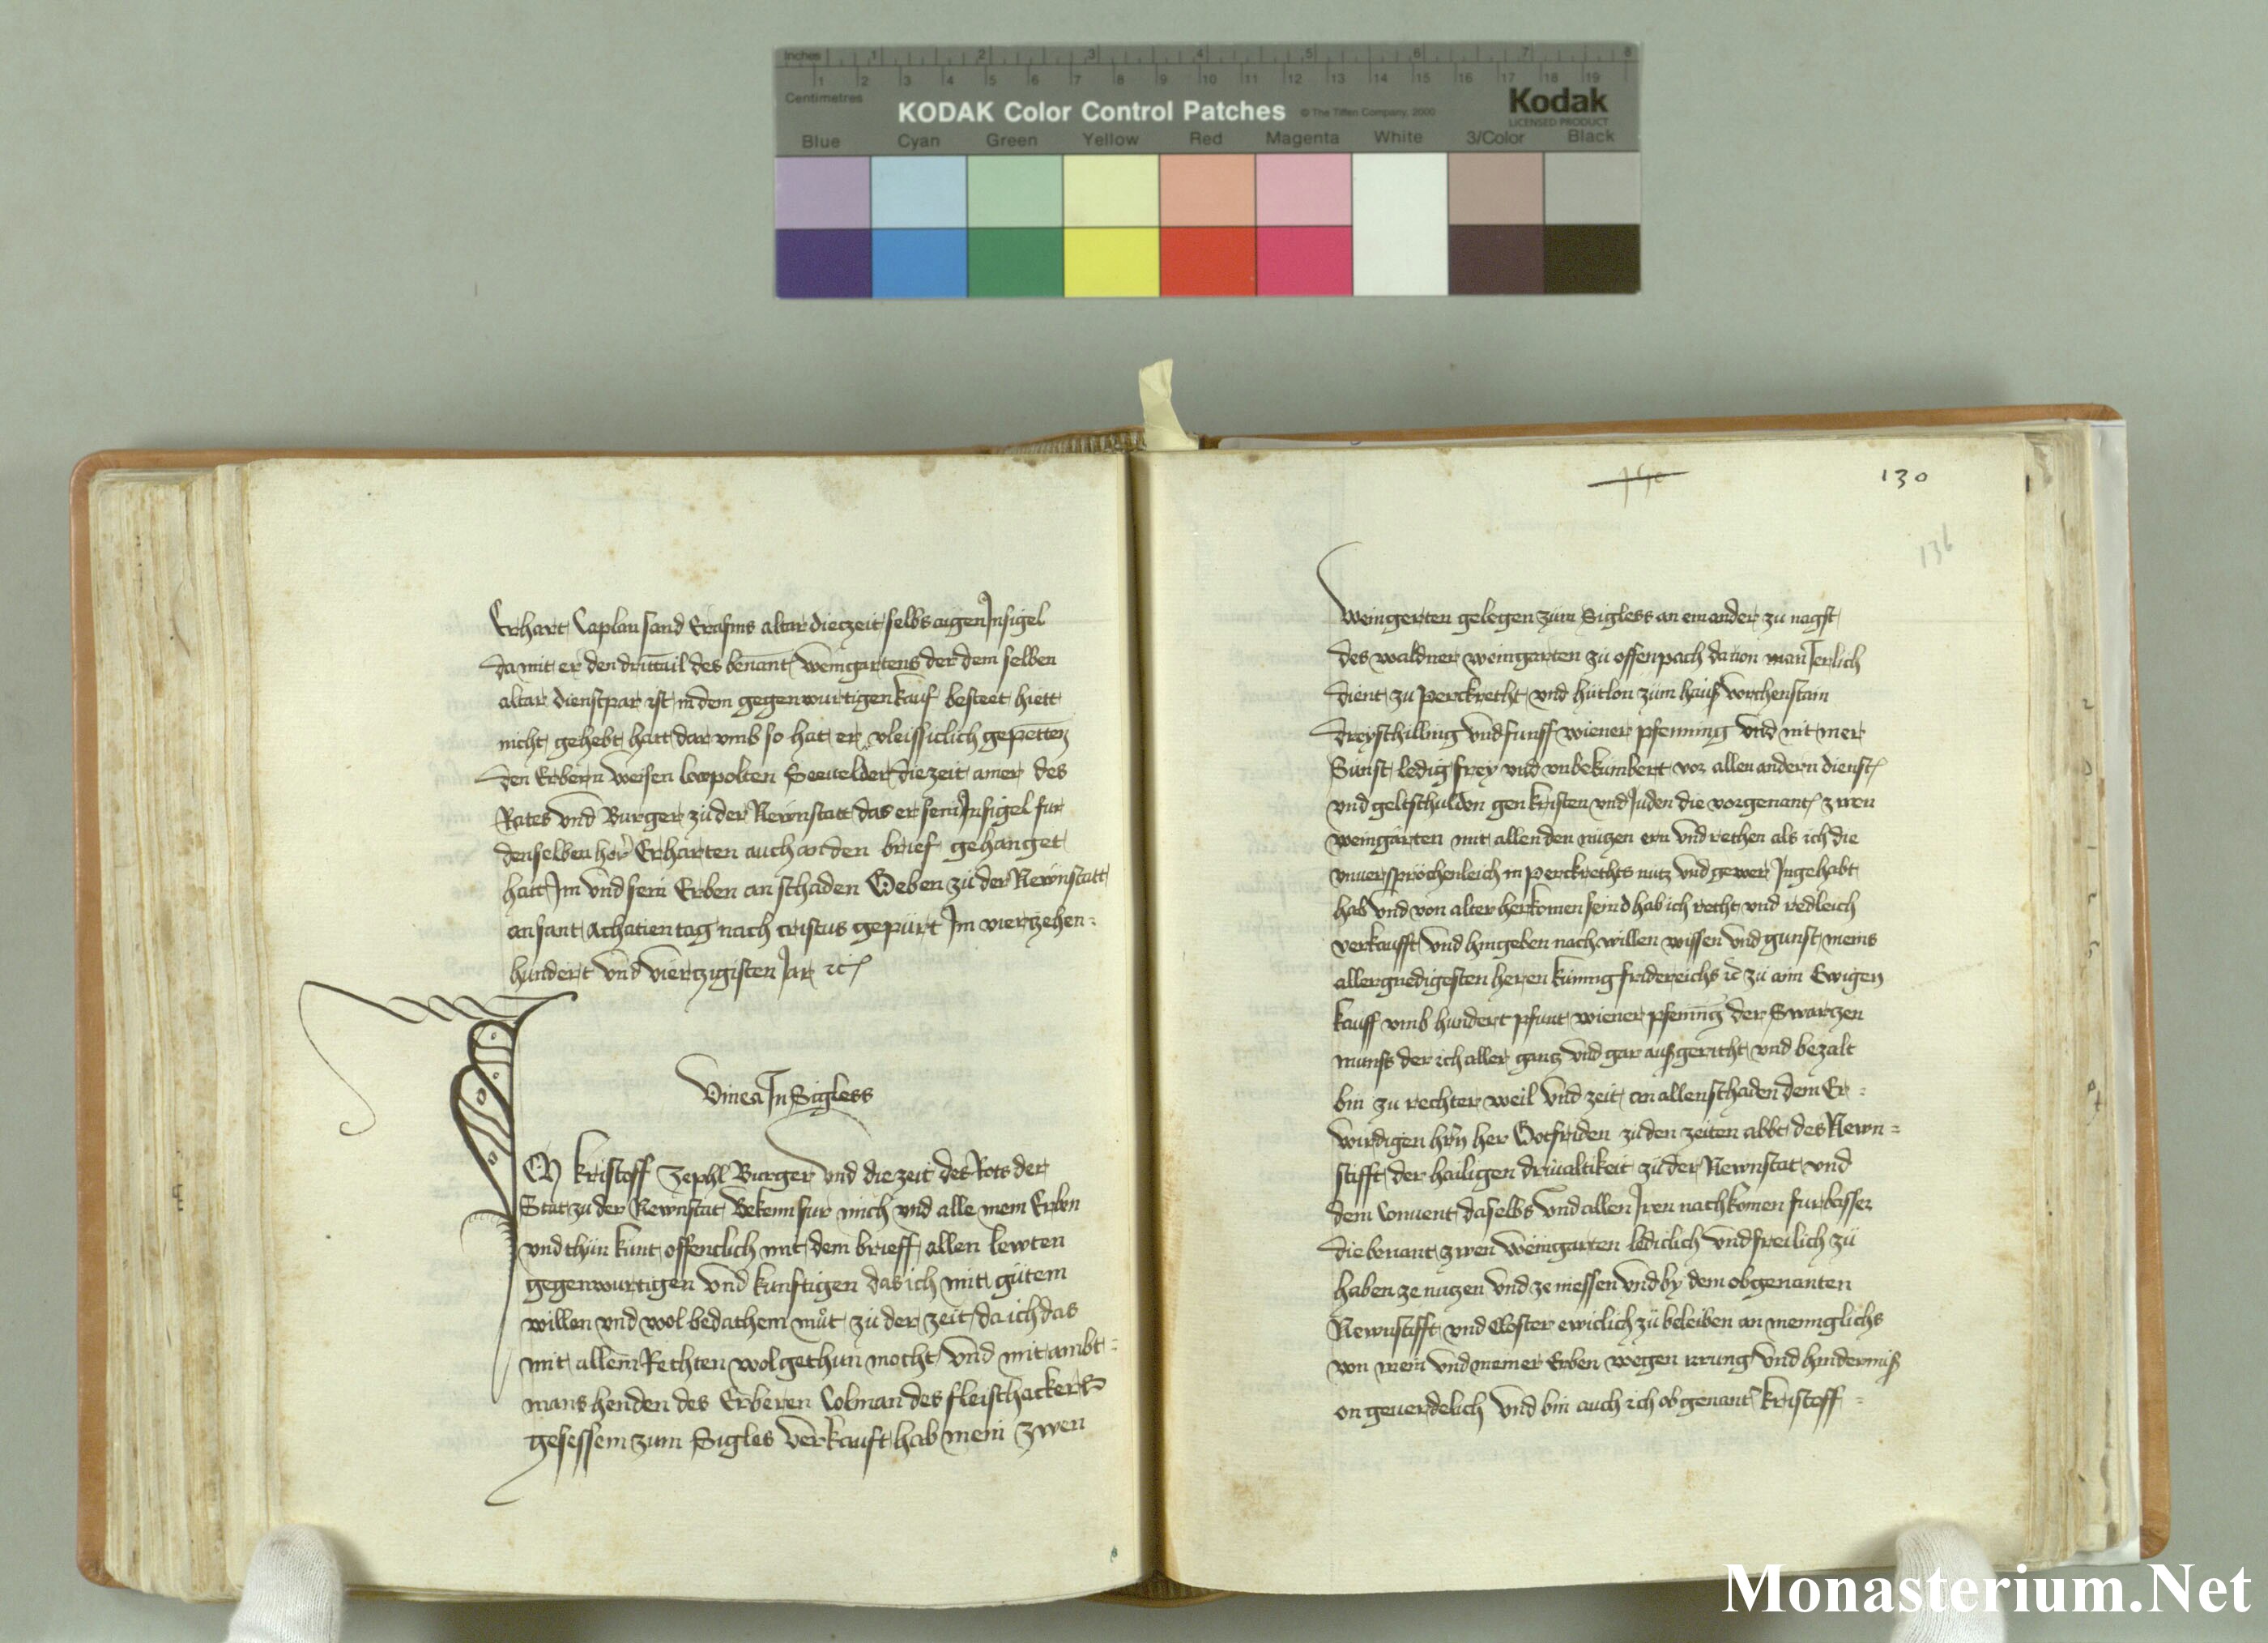 Inches 1 2 3 4 5 6 7 8
1 2 3 4 5 6 7 8 9 10 11 12 13 14 15 16 17 18 19
Centimetres
KODAK Color Control Patches © The Tiffen Company, 2000 Kodak
LICENSED PRODUCT
Blue Cyan Green Yellow Red Magenta White 3/Color Black
Erhart Caplan sand Erasms altar die zeit selbs aigen Insigel
da mit er den druttail des benant weingartens der dem selben
altar dienstpar ist in dem gegenwurtigen kauf besteet hiett
nicht gehebt hatt dar vmb so hat er vleissiclich gepetten
den Erbern weisen lewpolten Seeuelder die zeit ainer des
Rates vnd Burger zu der Newnstatt das er sein Insigel fur
denselben her Erharten auch an den brief gehanget
hatt Im vnd sein Erben an schaden Geben zu der Newnstatt
an sant Achatien tag nach cristus gepürt Im vierzehen=
hundert vnd viertzigisten Jar etc
Vinea In Sigless
Ich kristoff Zephl Burger vnd die zeit des Rats der
Stat zu der Newnstat Bekenn fur mich vnd alle mein Erben
vnd thun kunt offenlich mit dem brieff allen lewten
gegenwurtigen vnd kunftigen das ich mit gütem
willen vnd wol bedachtem müt zu der zeit da ich das
mit allem Rechten wol gethun mocht vnd mit ambt=
mans henden des Erberen Colman des fleischacker
gesessem zum Sigles verkauft hab mein zwen
130
136
weingerten gelegen zum Sigless an einander zu nagst
des waldner weingarten zu offenpach dauon man Ierlich
dient zu perckrecht vnd hütlon zum haus vorchenstain
drey schilling vnd funff wiener pfenning vnd nit mer
Sunst ledig frey vnd vnbekumbert vor allen andern dienst
vnd geltschulden gen kristen vnd Juden die vorgenant zwen
weingarten mit allen den nützen ern vnd rechten als ich die
vnuersprochenleich in perckrechts nutz vnd gewer Ingehabt
hab vnd von alter herkomen seind hab ich recht vnd redleich
verkaufft vnd hingeben nach willen wissen vnd gunst meins
allergnedigesten heren kunnig fridereichs etc zu aim Ewigen
kauff vmb hundert pfunt wiener pfening der Swarzen
munss der ich aller gantz vnd gar ausgericht vnd bezalt
bin zu rechter weil vnd zeit an allen schaden dem Er=
wirdigen hern her Gotfriden zu den zeiten abbt des Newn=
stifft der hailigen driualtikeit zu der Newnstat vnd
dem Conuent daselbs vnd allen Iren nachkomen furbasser
die benant zwen weingarten lediclich vnd freilich zu
haben ze nutzen vnd ze niessen vnd by dem obgenanten
Newnstifft vnd Closter ewiclich zu beleiben an menniglichs
von mein vnd meiner Erben wegen irrung vnd hindernuss
on geuerdelich vnd bin auch ich obgenant kristoff=
Monasterium.Net